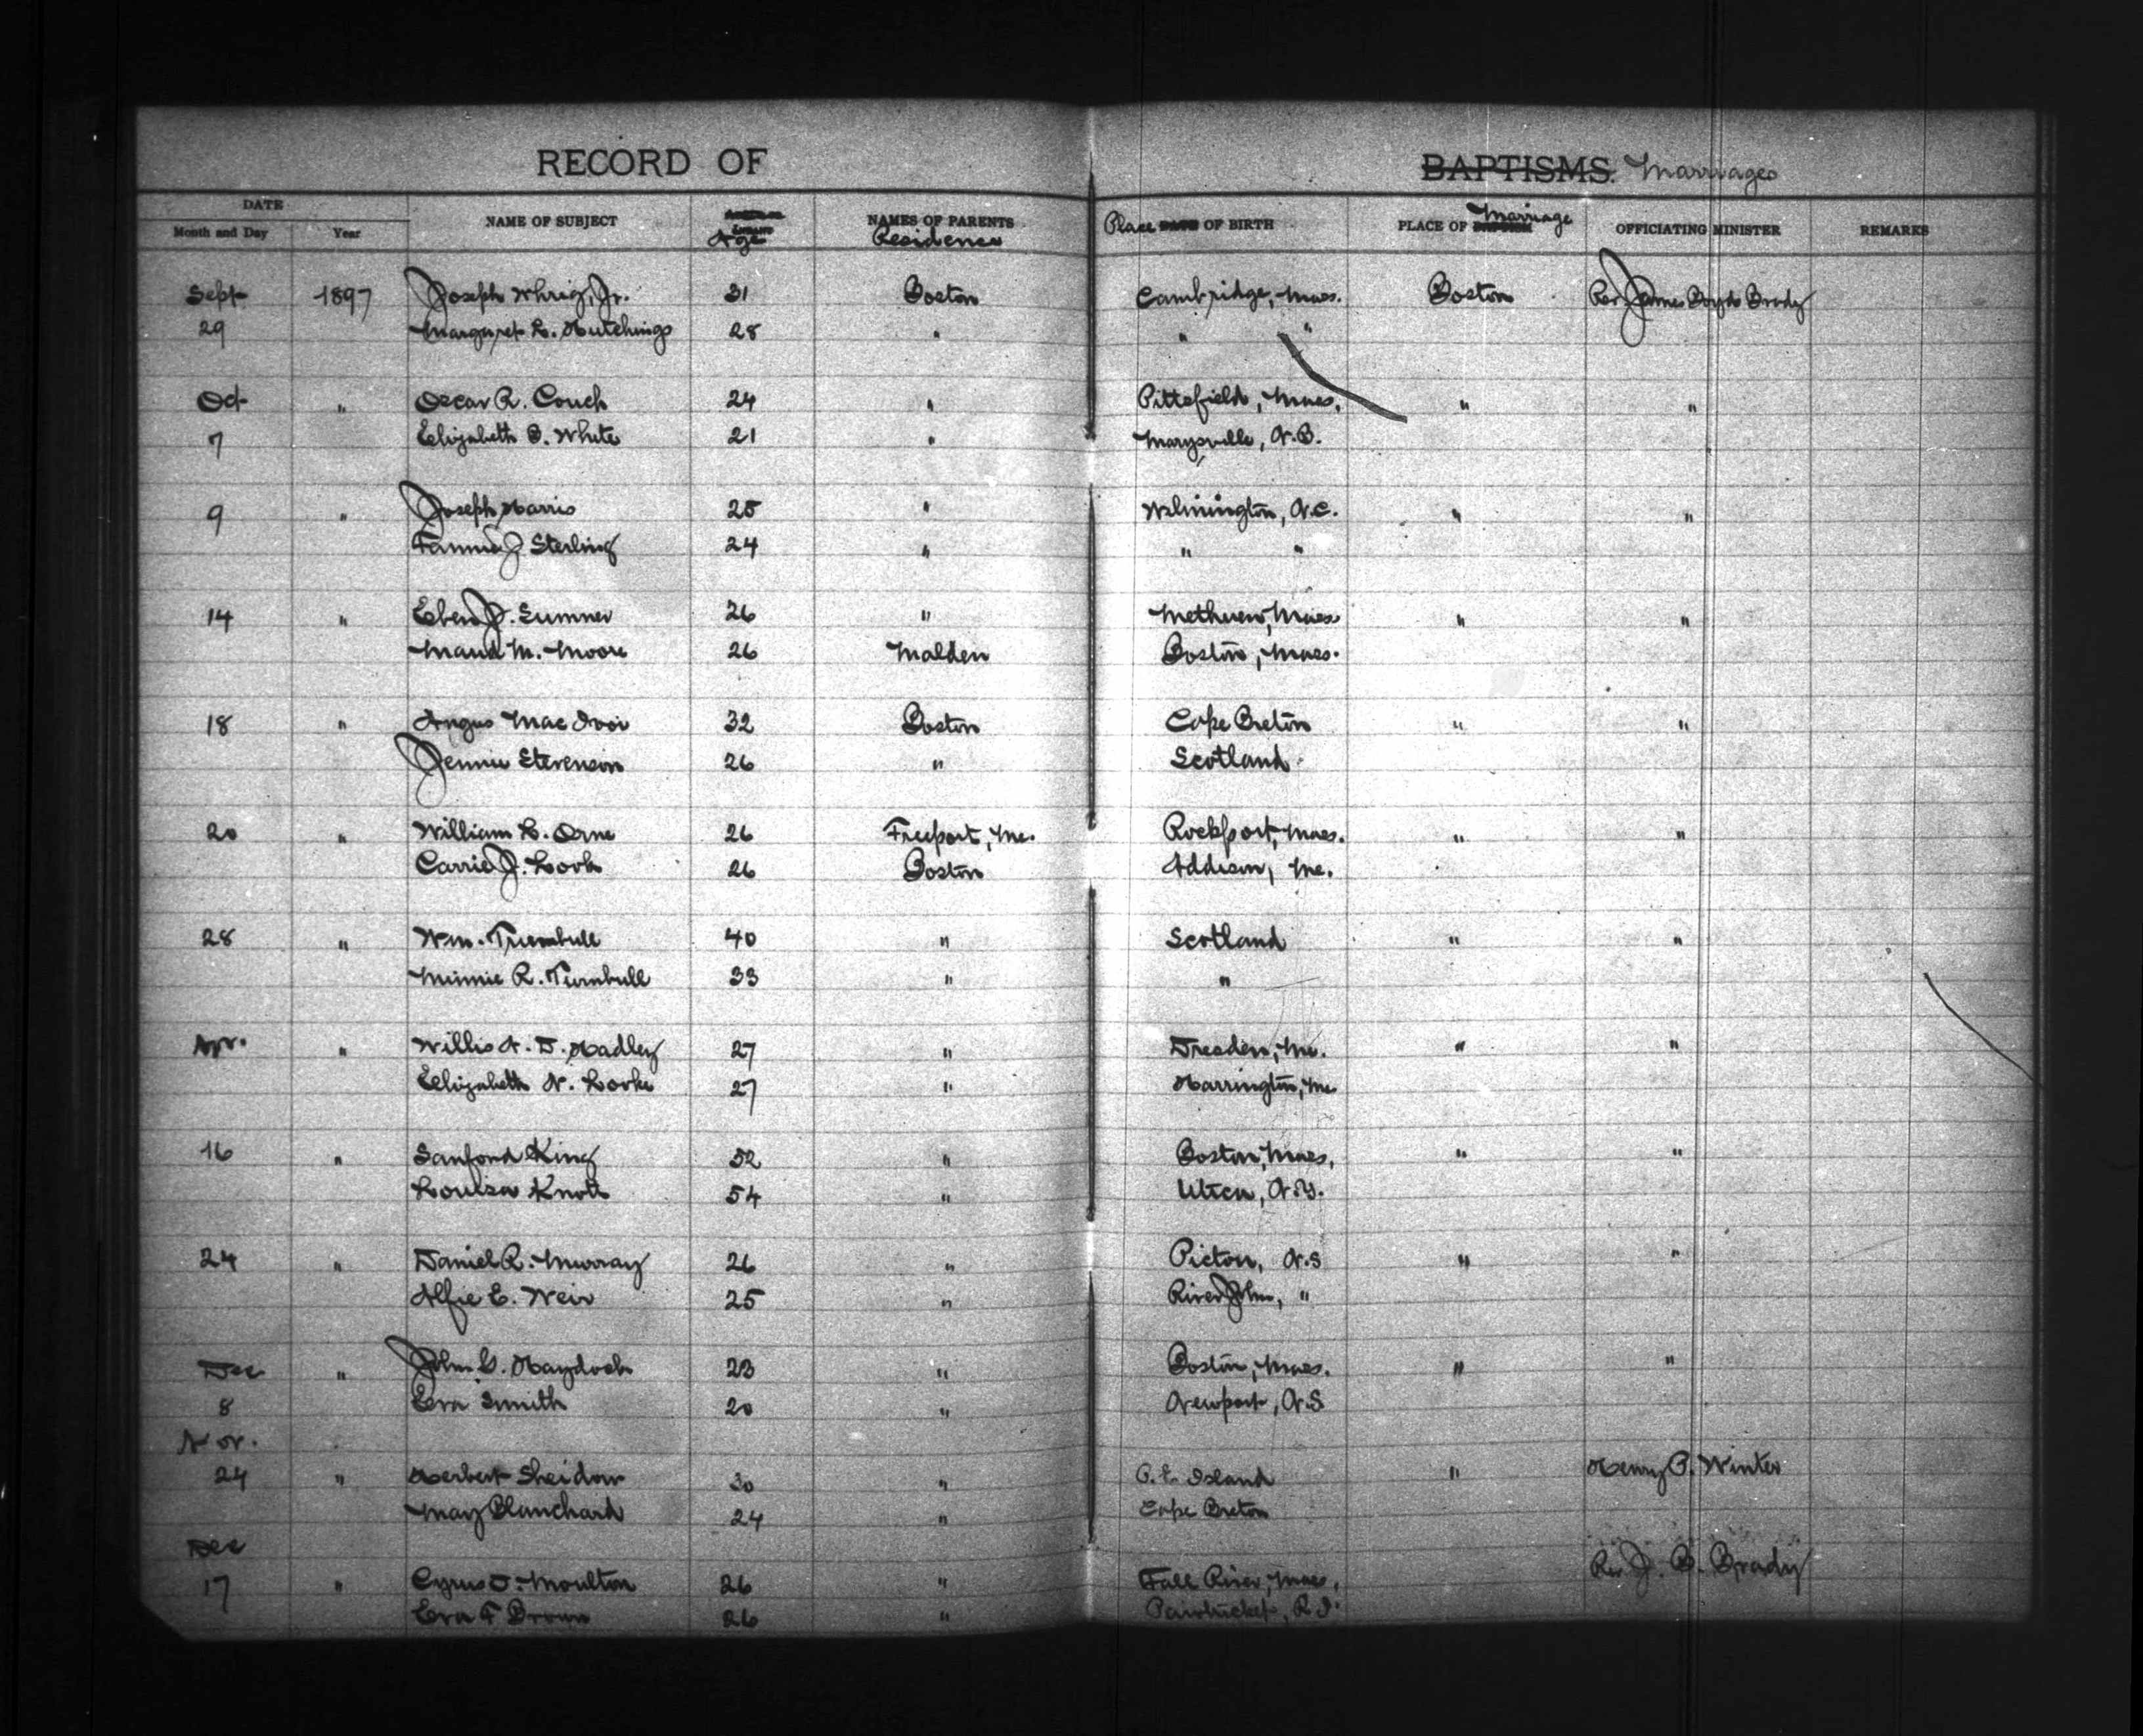 RECORD OF BAPTISMS. Marriages
DATE
Month and Day Year NAME OF SUBJECT Age NAMES OF PARENTS Residence Place OF BIRTH PLACE OF Marriage OFFICIATING MINISTER REMARKS
Sept 1897 Joseph Jr. 31 Boston Cambridge, Mass. Boston Rev. James Boyd Brady
29 Margaret L. Hutchings 28 " " "
Oct " Oscar R. Couch 24 " Pittsfield, Mass. " "
7 Elizabeth B. White 21 " Marysville, N.B.
9 " Joseph Harris 25 " Wilmington, N.C. " "
Fannie J. Sterling 24 " " "
14 " Eben J. Sumner 26 " Methuen, Mass. " "
Maud M. Moore 26 Malden Boston, Mass.
18 " Angus Mac 32 Boston Cape Breton " "
Jennie Stevenson 26 " Scotland
20 " William L. Orne 26 Freeport, Me. Rockport, Mass. " "
Carrie J. Look 26 Boston Addison, Me.
28 " Wm. Turnbull 40 " Scotland " "
Minnie R. Turnbull 33 " "
" Willis A. D. Hadley 27 " Dresden, Me. " "
Elizabeth N. 27 " Harrington, Me
16 " Sanford King 52 " Boston, Mass. " "
Louisa Knott 54 " Utica, N.Y.
24 " Daniel R. Murray 26 " Picton, N.S " "
Alfie E. Weir 25 " River John, "
Dec " John G. Haydock 23 " Boston, Mass. " "
8 Eva Smith 20 " Newport, N.S
Nov.
24 " Herbert 30 " P. E. Island " Henry P. Winter
May Blanchard 24 " Cape Breton
Dec
17 " Cyrus T. Moulton 26 " Fall River, Mass. Rev J. B. Brady
Eva F Brown 26 " Pawtucket, R.I.